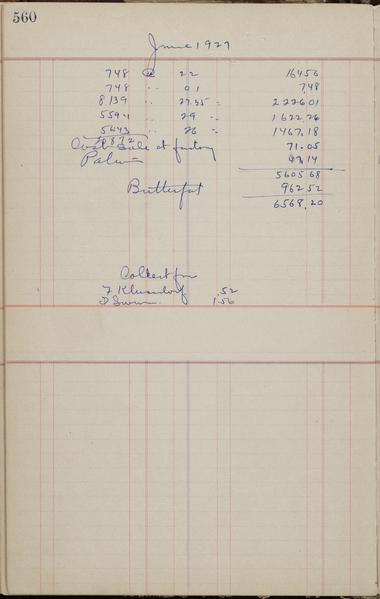 560
June 1927
748 @ 22 164.56
748 " 01 7.48
8139 " 27.35 = 2226.01
5594 " 29 " 1622.26
5643 " 26 = 1467.18
Cash Sale at factory 71.05
47.14
5605 68
Butterfat 962 52
6568.20
Collect for
F Klusendorf .52
1.56